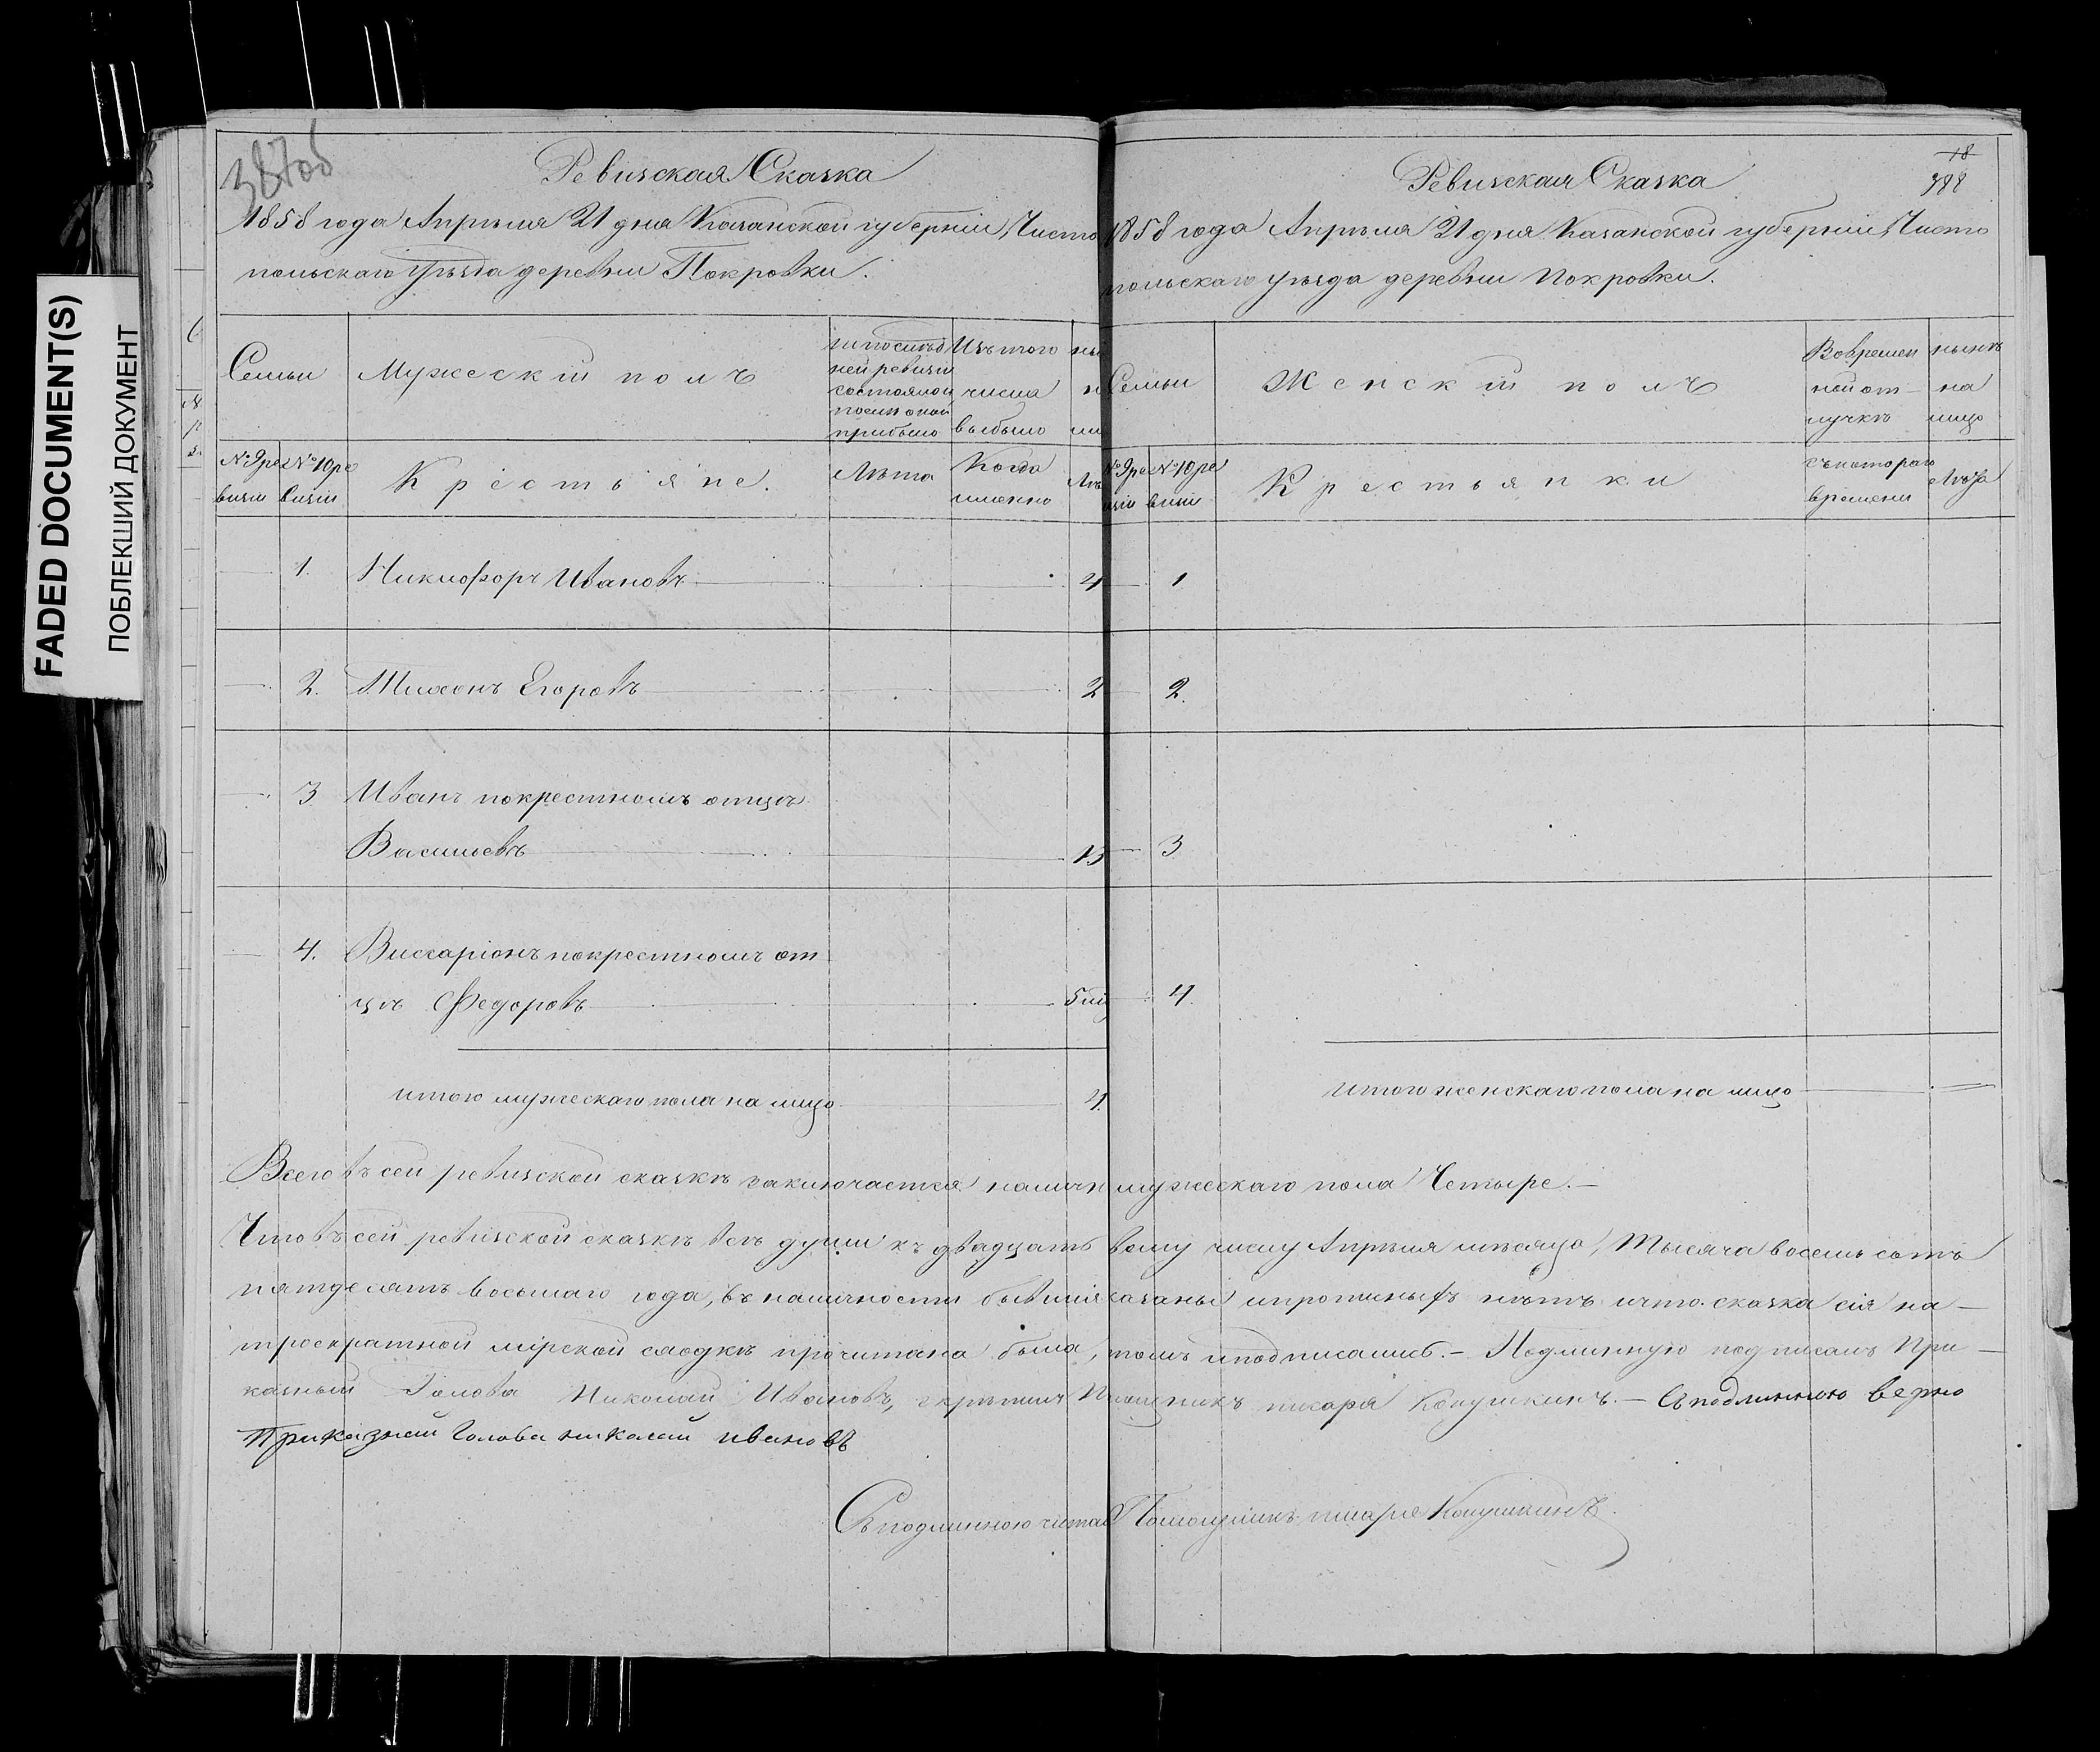 FADED DOCUMENT(S)
ПОБЛЕКШИЙ ДОКУМЕНТ
387об
Ревизская Сказка
1858 года Апрѣля 21 дня Казанской губерніи, Чисто
польскаго уѣзда деревни Покровки.
Семьи
Мужескій полъ
Изъ того
числа
выбыло
№ 9 ре
визіи
№ 10 ре
визіи
Крестьяне.
Лѣта
Когда
именно
1. Никифоръ Ивановъ 4
2. Тихонъ Егоровъ 2
3 Иванъ покрестномъ отцѣ
Васильевъ
4. Виссаріонъ покрестномъ от
цѣ Федоровъ
итого мужескаго пола на лицо 4.
18
388
Ревизская Сказка
1858 года Апрѣля 21 дня Казанской губерніи, Чисто
польскаго уѣзда деревни Покровки.
Семьи
Женскій полъ
Вовремен
ной от
лучкѣ
нынѣ
на
лицо
№ 9 ре
№ 10 ре
визіи
Крестьянки
съкотораго
времени
Лѣта
1
2.
3
4.
итого женскаго пола на лицо
Всего въ сей ревизской сказкѣ заключается наличн мужескаго пола Четыре.-
Чтовъ сей ревизской сказкѣ всѣ души къ двадцать вому числу Апрѣля мѣсяца, Тысяча восемь сотъ
пятдесятъ восьмаго года, въ наличности бывшія азаны ипрописныхъ нѣтъ ичто сказка сія на-
троекратной мірской сходкѣ прочитана была, томъ иподписались.- Подлинную подписалъ При-
казный Голова Николай Ивановъ, скрѣпилъ писаря Кокушкинъ.- Съ подлинною верно
Приказный Голова николай ивановъ
Съ подлинною читалъ Помощникъ писаря Кокушкинъ.